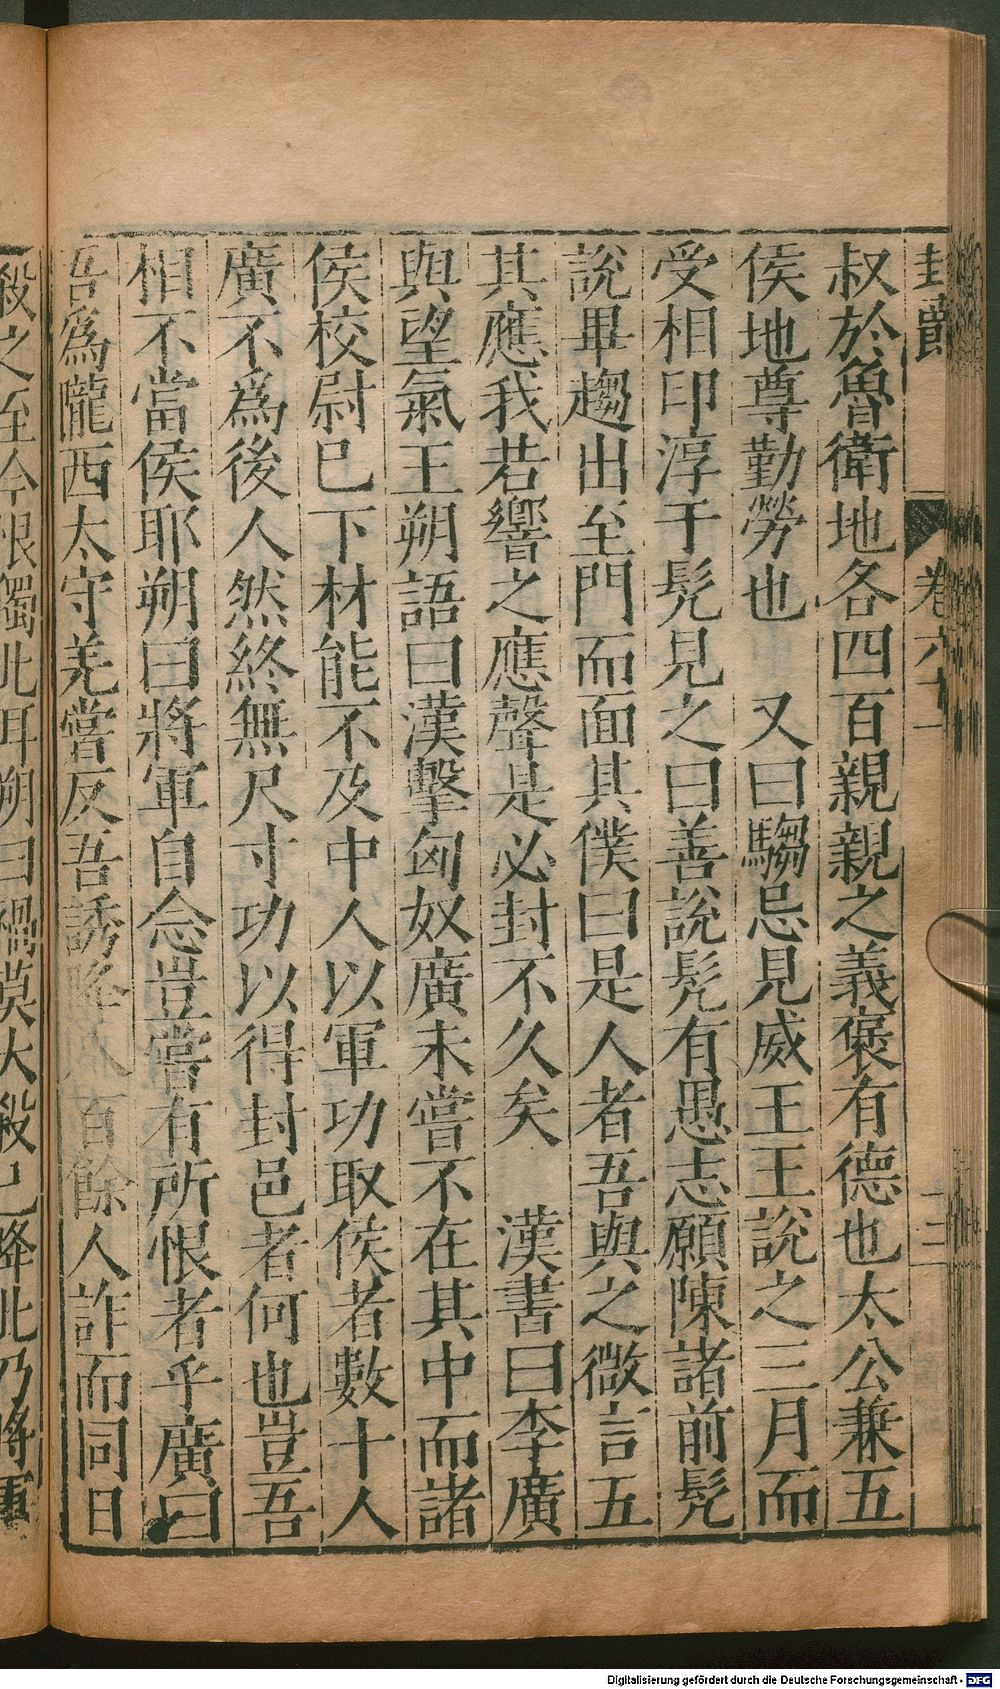 封爵 卷六十一 十三
叔於魯衛地各四百親親之義褒有德也太公兼五
侯地尊勤勞也　又曰騶忌見威王王說之三月而
受相印淳于髡見之曰善說髡有愚志願陳諸前髡
說畢趨出至門而面其僕曰是人者吾與之微言五
其應我若響之應聲是必封不久矣　漢書曰李廣
與望氣王朔語曰漢擊匈奴廣未嘗不在其中而諸
侯校尉已下材能不及中人以軍功取侯者數十人
廣不爲後人然終無尺寸功以得封邑者何也豈吾
相不當侯耶朔曰將軍自念豈嘗有所恨者乎廣曰
吾爲隴西太守羌嘗反吾誘降八百餘人詐而同日
殺之至今恨獨此耳朔曰禍莫大殺已降此乃將軍
Digitalisierung gefördert durch die Deutsche Forschungsgemeinschaft - DFG